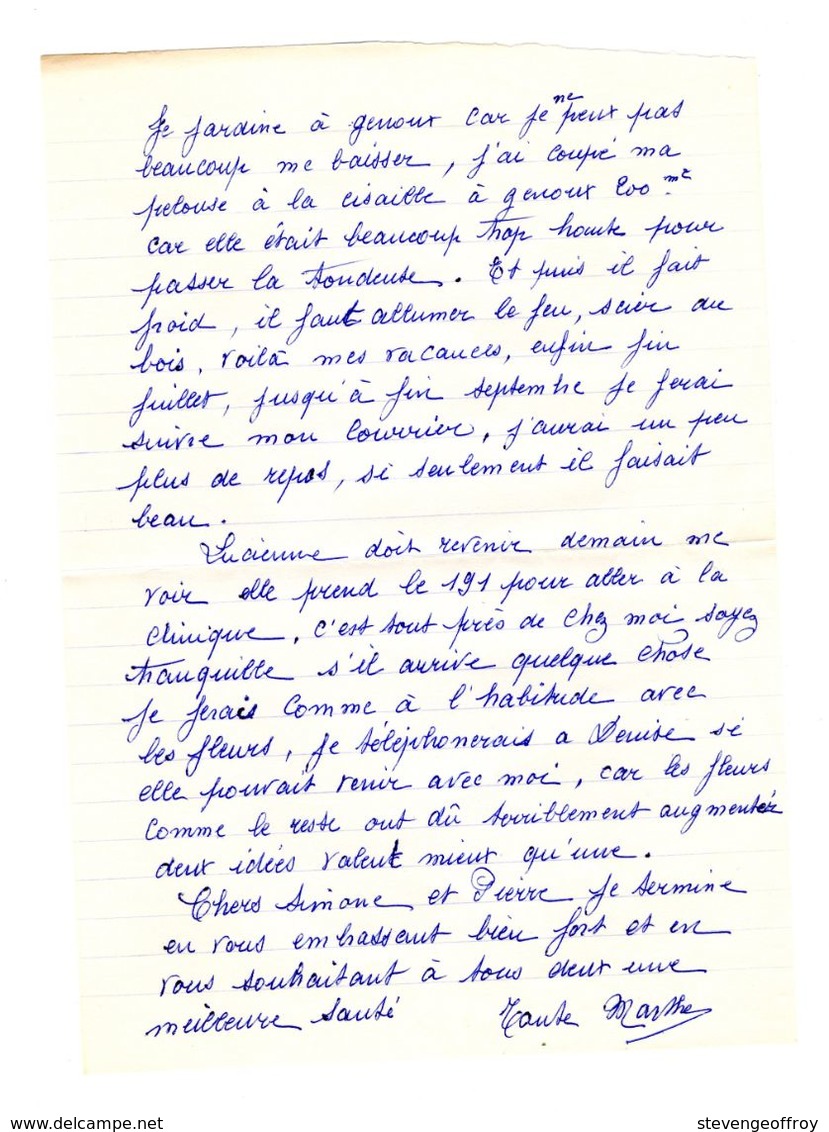 Je jardine à genoux car je ne peux pas
beaucoup me baisser, j'ai coupé ma
pelouse à la cisaille à genoux 200 m²
car elle était beaucoup trop haute pour
passer la tondeuse. Et puis il fait
froid, il faut allumer le feu, scier du
bois, voilà mes vacances, enfin fin
juillet, jusqu'à fin septembre je ferai
suivre mon courrier, j'aurai un peu
plus de repos, si seulement il faisait
beau.
Lucienne doit revenir demain me
voir elle prend le 191 pour aller à la
clinique, c'est tout près de chez moi soyez
tranquille s'il arrive quelque chose
je ferais comme à l'habitude avec
les fleurs, je téléphonerais a Denise si
elle pouvait venir avec moi, car les fleurs
comme le reste ont dû terriblement augmenter
deux idées valent mieux qu'une.
Chers Simone et Pierre je termine
en vous embrassant bien fort et en
vous souhaitant à tous deux une
meilleure santé Tante Marthe
delcampe.net
stevengeoffroy